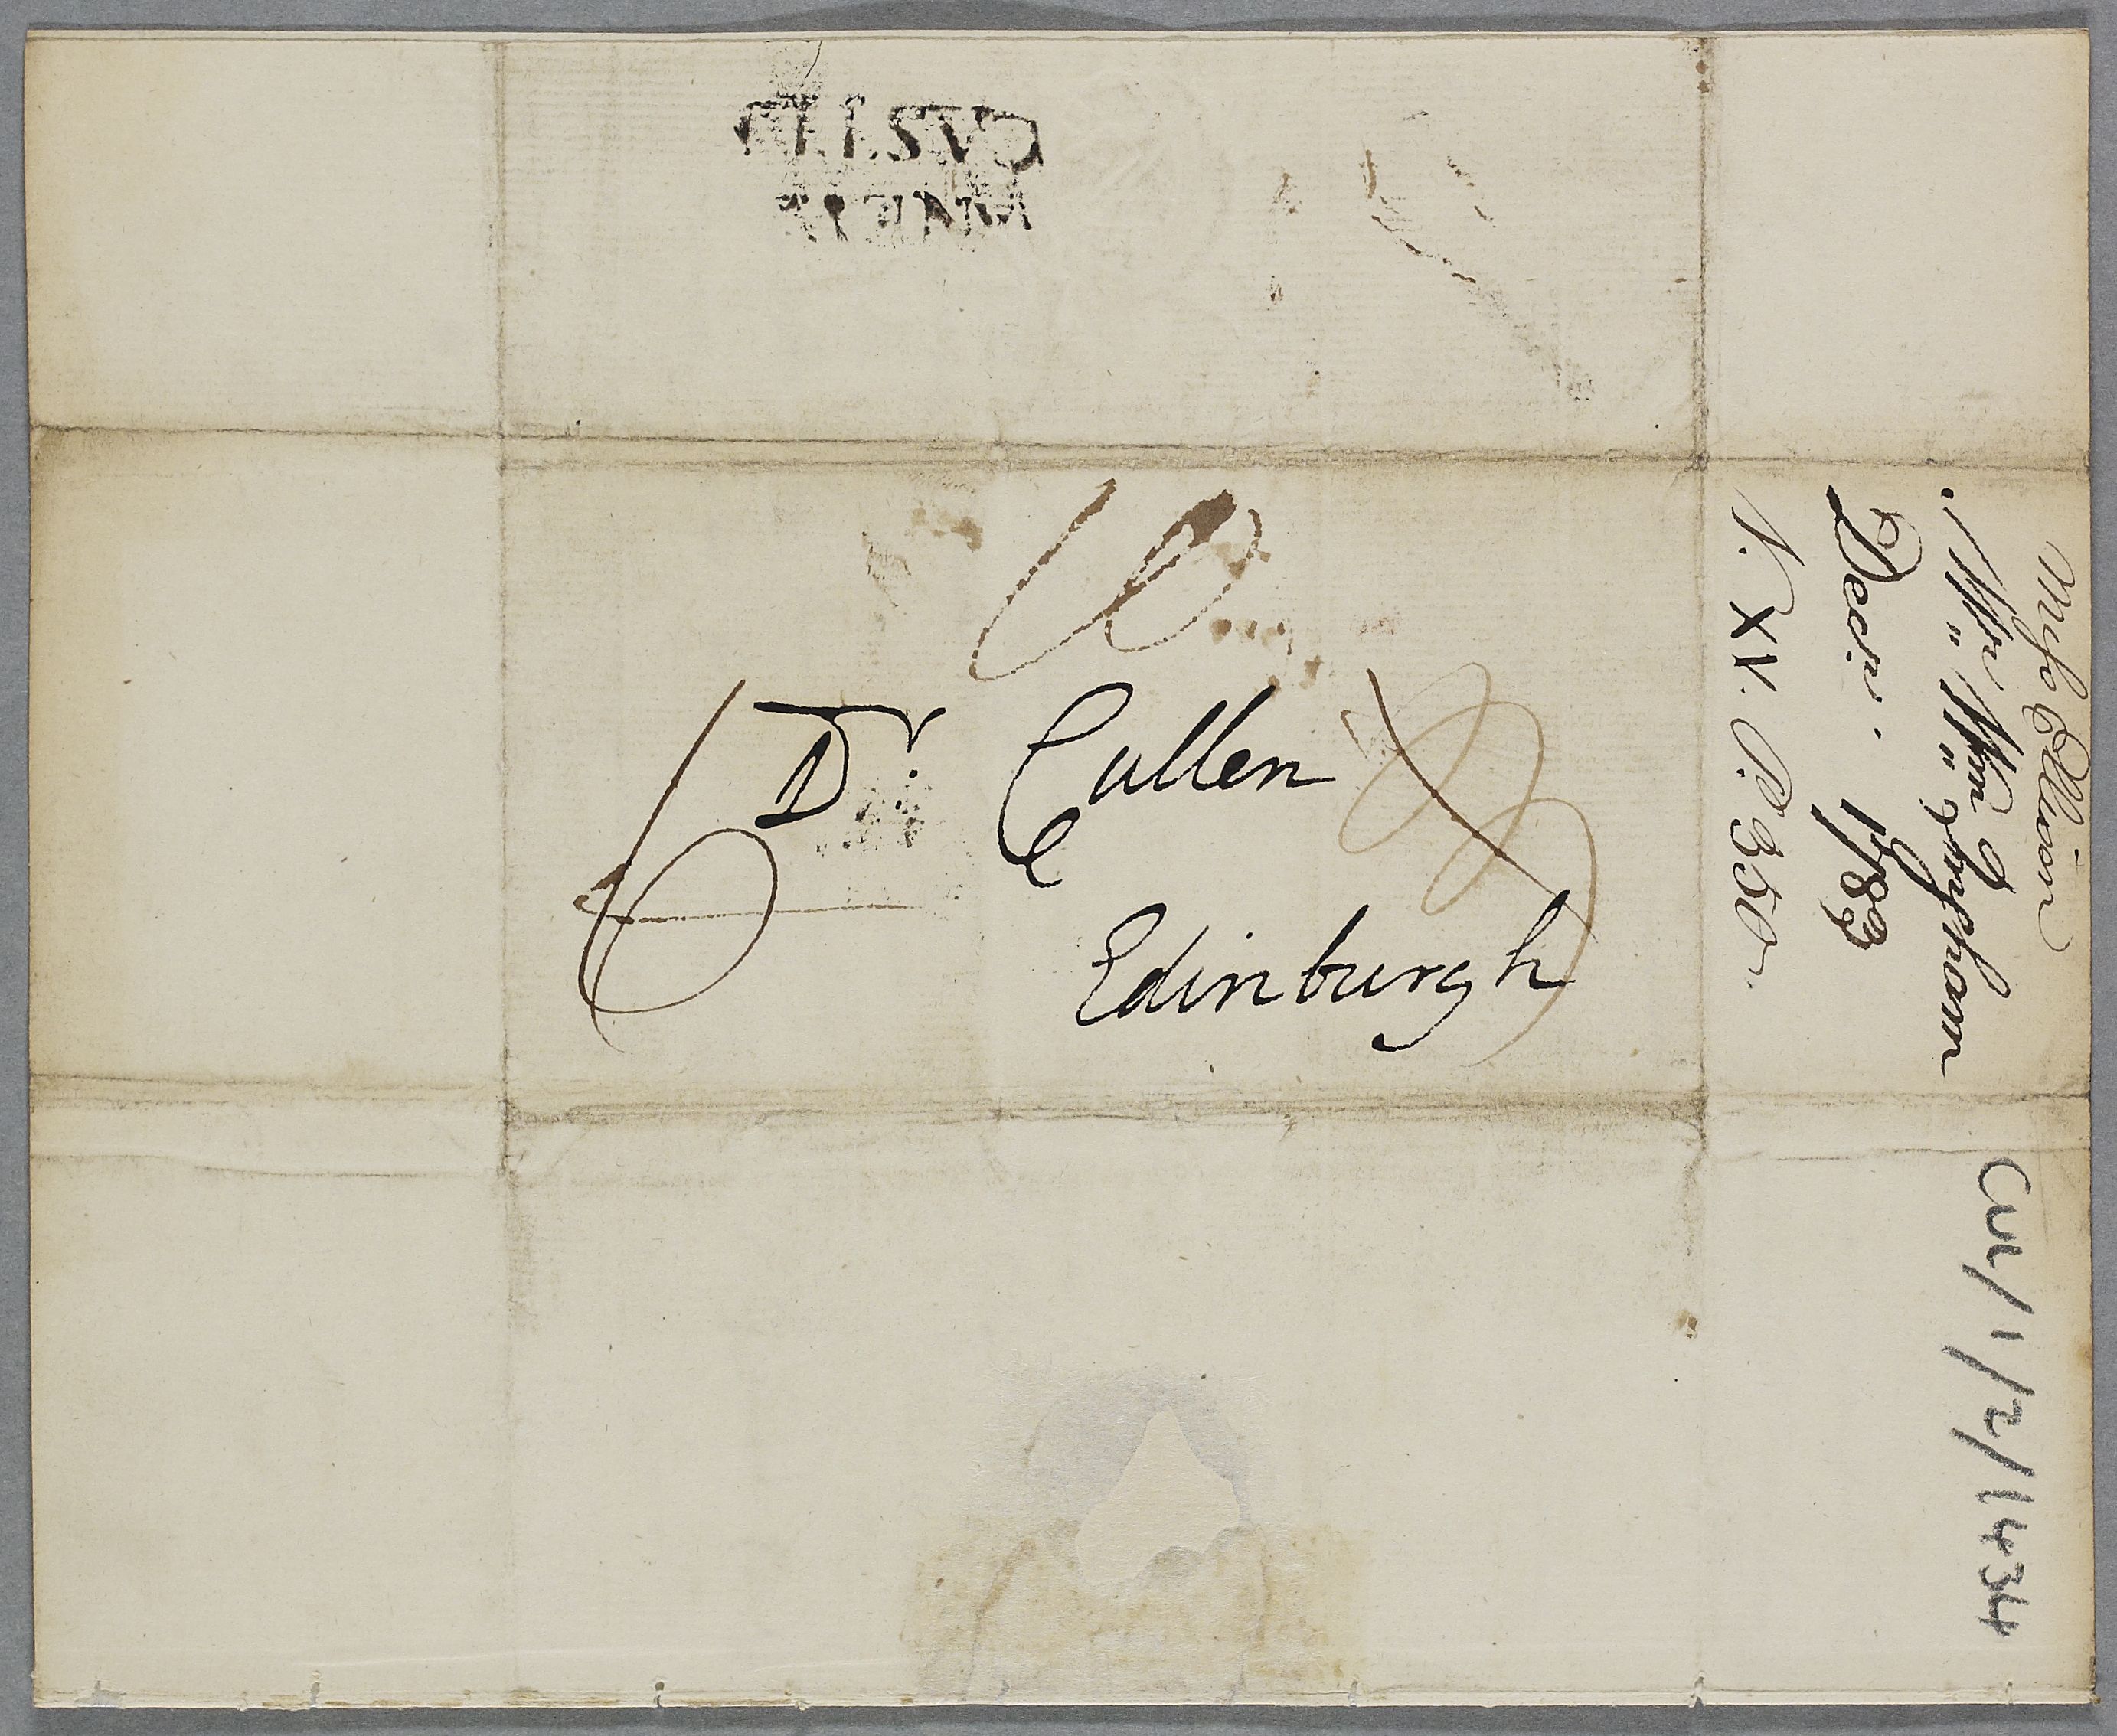 Dr. Cullen
Edinburgh
Miss Ellison
Mr. Wm. Ingham
Decr. 1783
V. XV. P. 350
CUL/1/2/1434